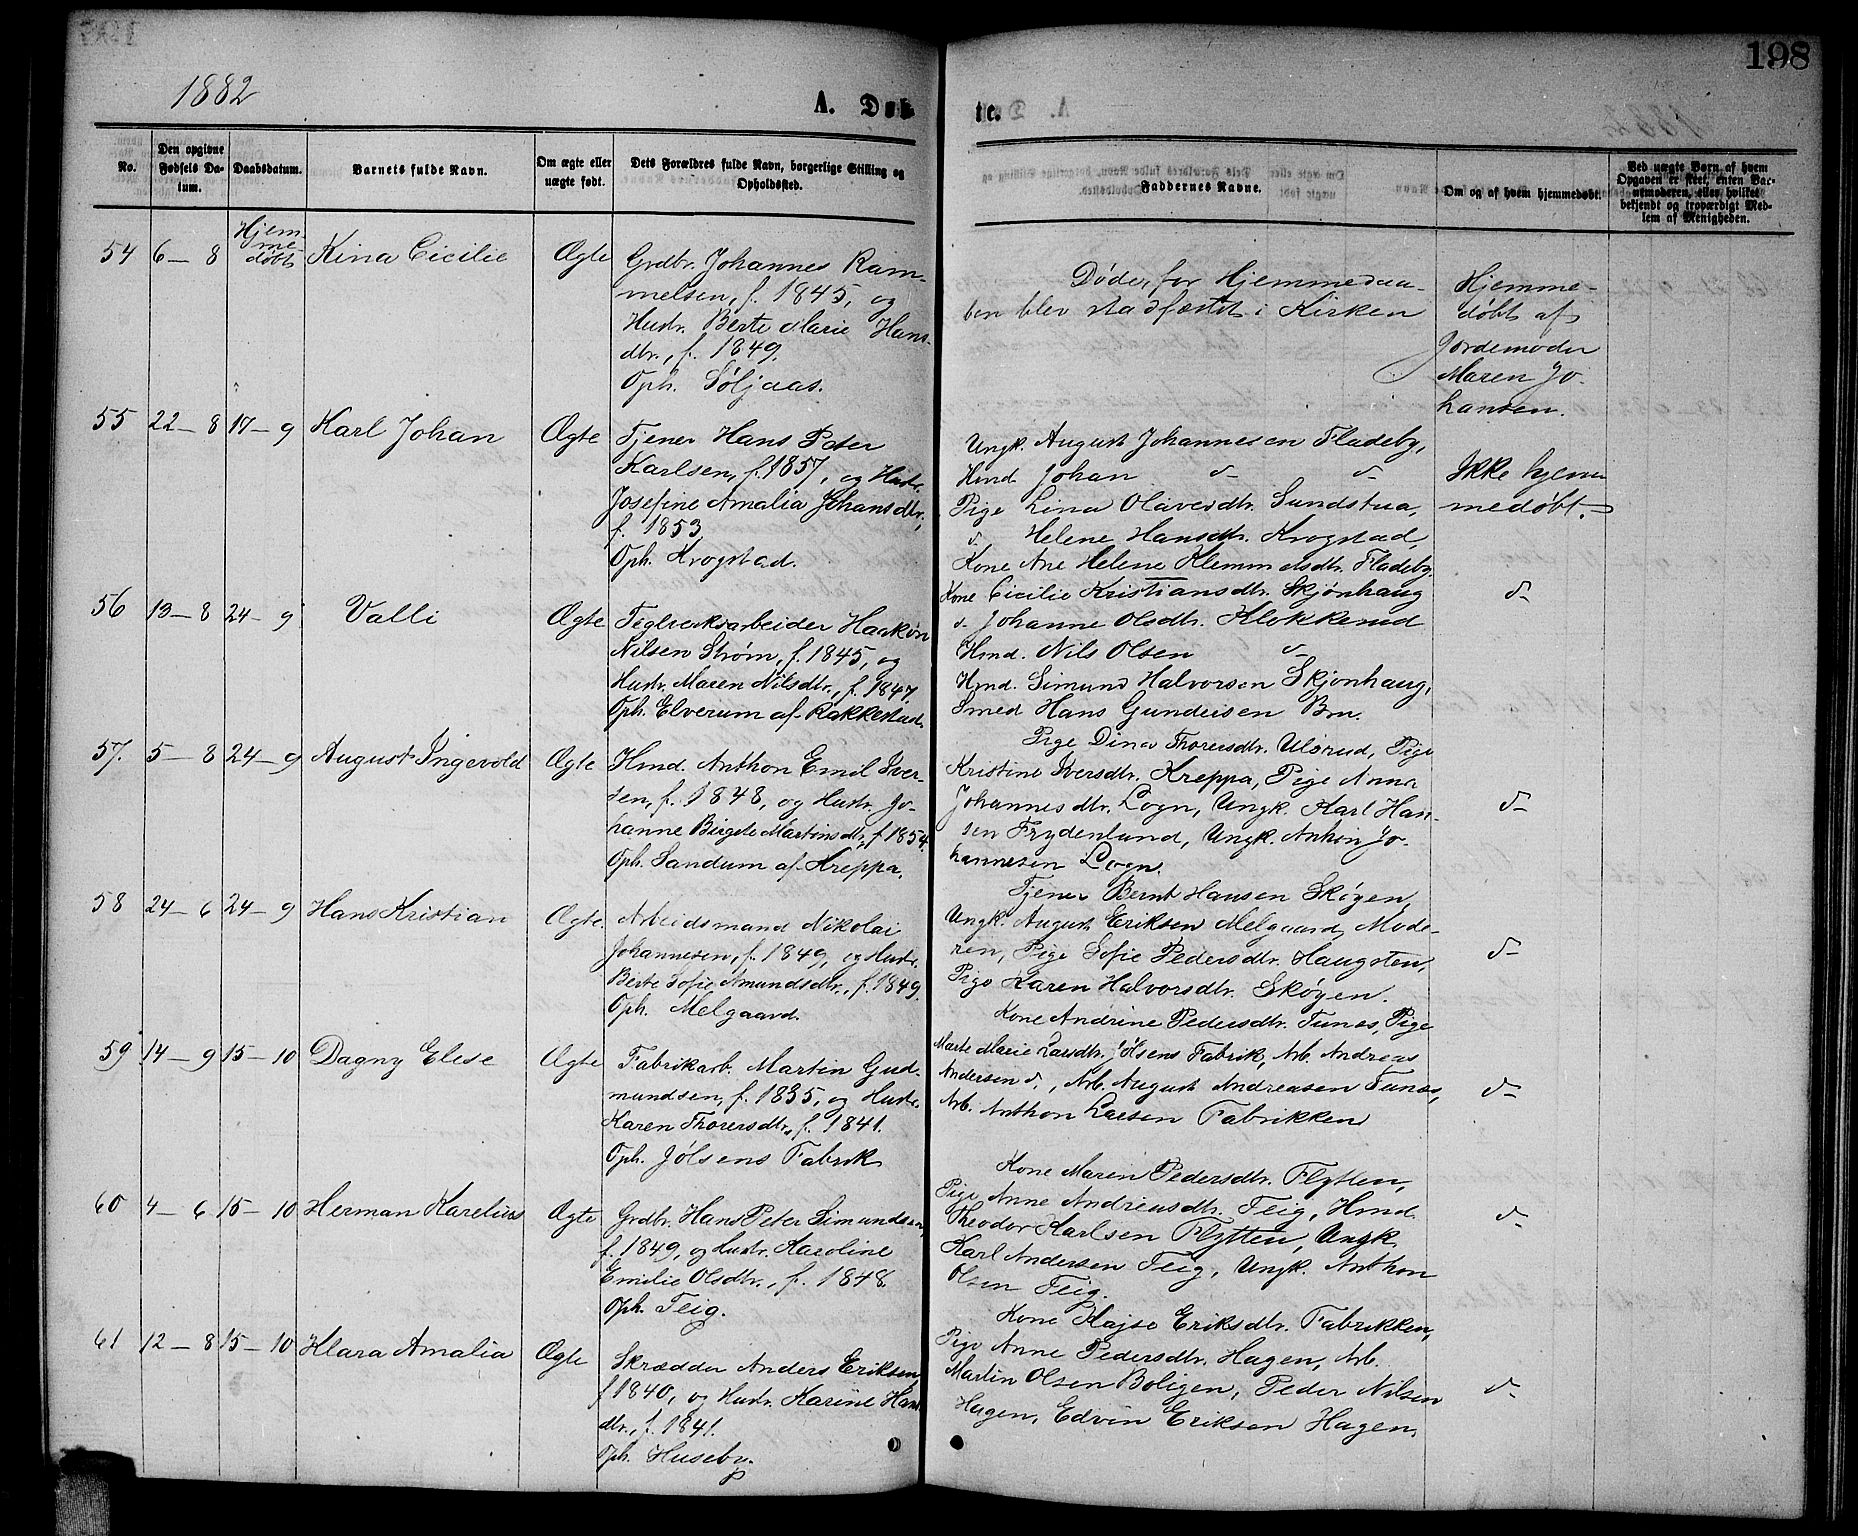 198
1882
A. Døb
te.
No.
Den opgivne Fødsels Datum.
Daabsdatum.
Barnets fulde Navn.
Om ægte eller uægte født.
Dets Forældres fulde Navn, borgerlige Stilling og Opholdssted.
Faddernes Navne.
Om og af hvem hjemmedøbt.
Ved uægte Børn af hvem Opgaven er skeet, enten Barnemoderen, eller hvilket bekjendt og troværdigt Medlem af Menigheden.
54 6 - 8 Hjemmedøbt Kina Cicilie Ægte
Grdbr. Johannes Ram-
melsen, f. 1845, og
Hustr. Berte Marie Hans-
dtr., f. 1849.
Oph. Søljaas.
Døde, før Hjemmedaa-
ben blev stadfæstet i Kirken
Hjemme-
døbt af
Jordemoder
Maren Jo-
hansen.
55 22 - 8 17 - 9 Karl Johan Ægte
Tjener Hans Peter
Karlsen, f. 1857, og Hustr.
Josefine Amalia Johansdtr.,
f. 1853
Oph. Krogstad.
Ungk. August Johannesen Fladeby,
Hmd. Johan d- d-
Pige Lina Olavesdtr. Sundstua,
d. Helene Hansdtr. Krogstad,
Kone Ane Helene Klemmetsdtr. Fladeby.
Ikke hjem
medøbt.
56 13 - 8 24 - 9 Valli Ægte
Teglverksarbeider Haakon
Nilsen Strøm, f. 1845, og
Hustr. Maren Nilsdtr., f. 1847.
Oph. Elverum af Rakkestad.
Kone Cicilie Kristiansdtr. Skjønhaug
d. Johanne Olsdtr. Klokkerud
Hmd. Nils Olsen d-
Hmd. Simund Halvorsen Skjønhaug,
Smed Hans Gundersen Bm.
d-
57. 5 - 8 24 - 9 August Ingevold Ægte
Hmd. Anthon Emil Iver-
sen, f. 1848, og Hustr. Jo-
hanne Birgete Martinsdtr., f. 1854.
Oph. Sandum af Kreppa.
Pige Dina Thorersdtr. Ulsrud, Pige
Kristine Iversdtr. Kreppa, Pige Anna
Johannesdtr. Logn, Ungk. Karl Han-
sen Frydenlund, Ungk. Anton Jo-
hannesen Logn.
d-
58 24 - 6 24 - 9 Hans Kristian Ægte.
Arbeidsmand Nikolai
Johannesen, f. 1849, og Hustr.
Berte Sofie Amundsdtr., f. 1849.
Oph. Melgaard.
Tjener Bernt Hansen Skøgen,
Ungk. August Eriksen Melgaard, Mode-
ren, Pige Sofie Pedersdtr. Haugsten,
Pige Karen Halvorsdtr. Skøgen.
d-
59 14 - 9 15 - 10 Dagny Elese Ægte
Fabrikarb. Martin Gud-
mundsen, f. 1835, og Hustr.
Karen Thorersdtr., f. 1841.
Oph. Jølsens Fabrik
Kone Andrine Pedersdtr. Tunes, Pige
Marte Marie Larsdtr. Jølsens Fabrik, Arb. Andreas
Andersen d., Arb. August Andreasen Tunes,
Arb. Anthon Larsen Fabrikken
d-
60 4 - 6 15 - 10 Herman Karelius Ægte
Grdbr. Hans Peter Simundsen,
f. 1849, og Hustr. Karoline
Emilie Olsdtr., f. 1848.
Oph. Teig.
Kone Maren Pedersdtr. Flytten,
Pige Anne Andreasdtr. Teig, Hmd.
Theodor Karlsen Flytten, Ungk.
Karl Andersen Teig, Ungk. Anthon
Olsen Teig.
d-
61 12 - 8 15 - 10 Klara Amalia Ægte
Skrædder Anders Eriksen,
f. 1840, og Hustr. Karine Hans
dtr., f. 1841.
Oph. Huseby.
Kone Kajse Eriksdtr. Fabrikken,
Pige Anne Pedersdtr. Hagen, Arb.
Martin Olsen Boligen, Peder Nilsen
Hagen, Edvin Eriksen Hagen.
d-